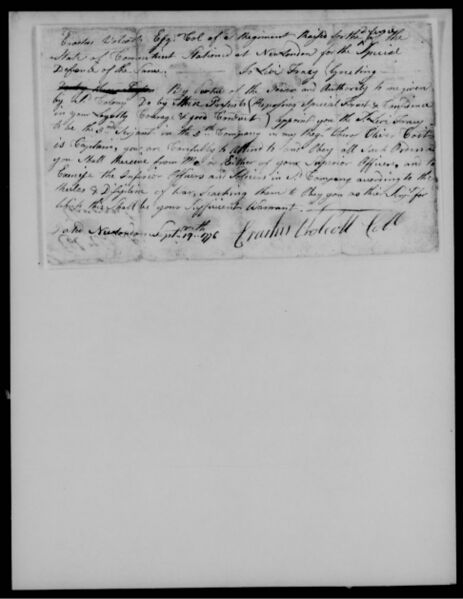 Erastus Wolcott Esqr Col of a Regiment Raised for the defence of the
State of Connecticut Stationed at New London for the Special
Defence of the Same. To Levi Greeting
By Virtue of the Power and Authority to me given
by sd Colony Do by these Presents (Reposing Special Trust & Confidence
in your Loyalty Courage & good Conduct) appoint you the sd Levi
to be the Serjant in the Company in my Regt
is Captain, you are Carefully to attend to and Obey all Such Orders as
you Shall Receive from Me or Either of your Superior Officers, and to
Exercise the Inferior Officers and Soldiers in sd Company according to the
Rules & Disipline of War, teaching them to Obey you as their Serjt for
which this Shall be your Sufficient Warrant
Dated New London Sept 19th 1776 Erastus Wolcott Coll